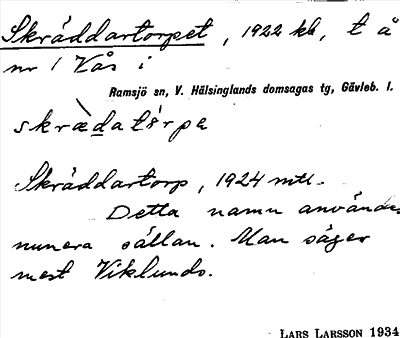 Skräddartorpet, 1922 kb, t å
nr 1 Vås i
Ramsjö sn, V. Hälsinglands domsagas tg, Gävleb. l.
skræ̀datɵ́rpa
Skräddartorp, 1924 mtl.
Detta namn användes
numera sällan. Man säger
mest Viklunds.
LARS LARSSON 1934